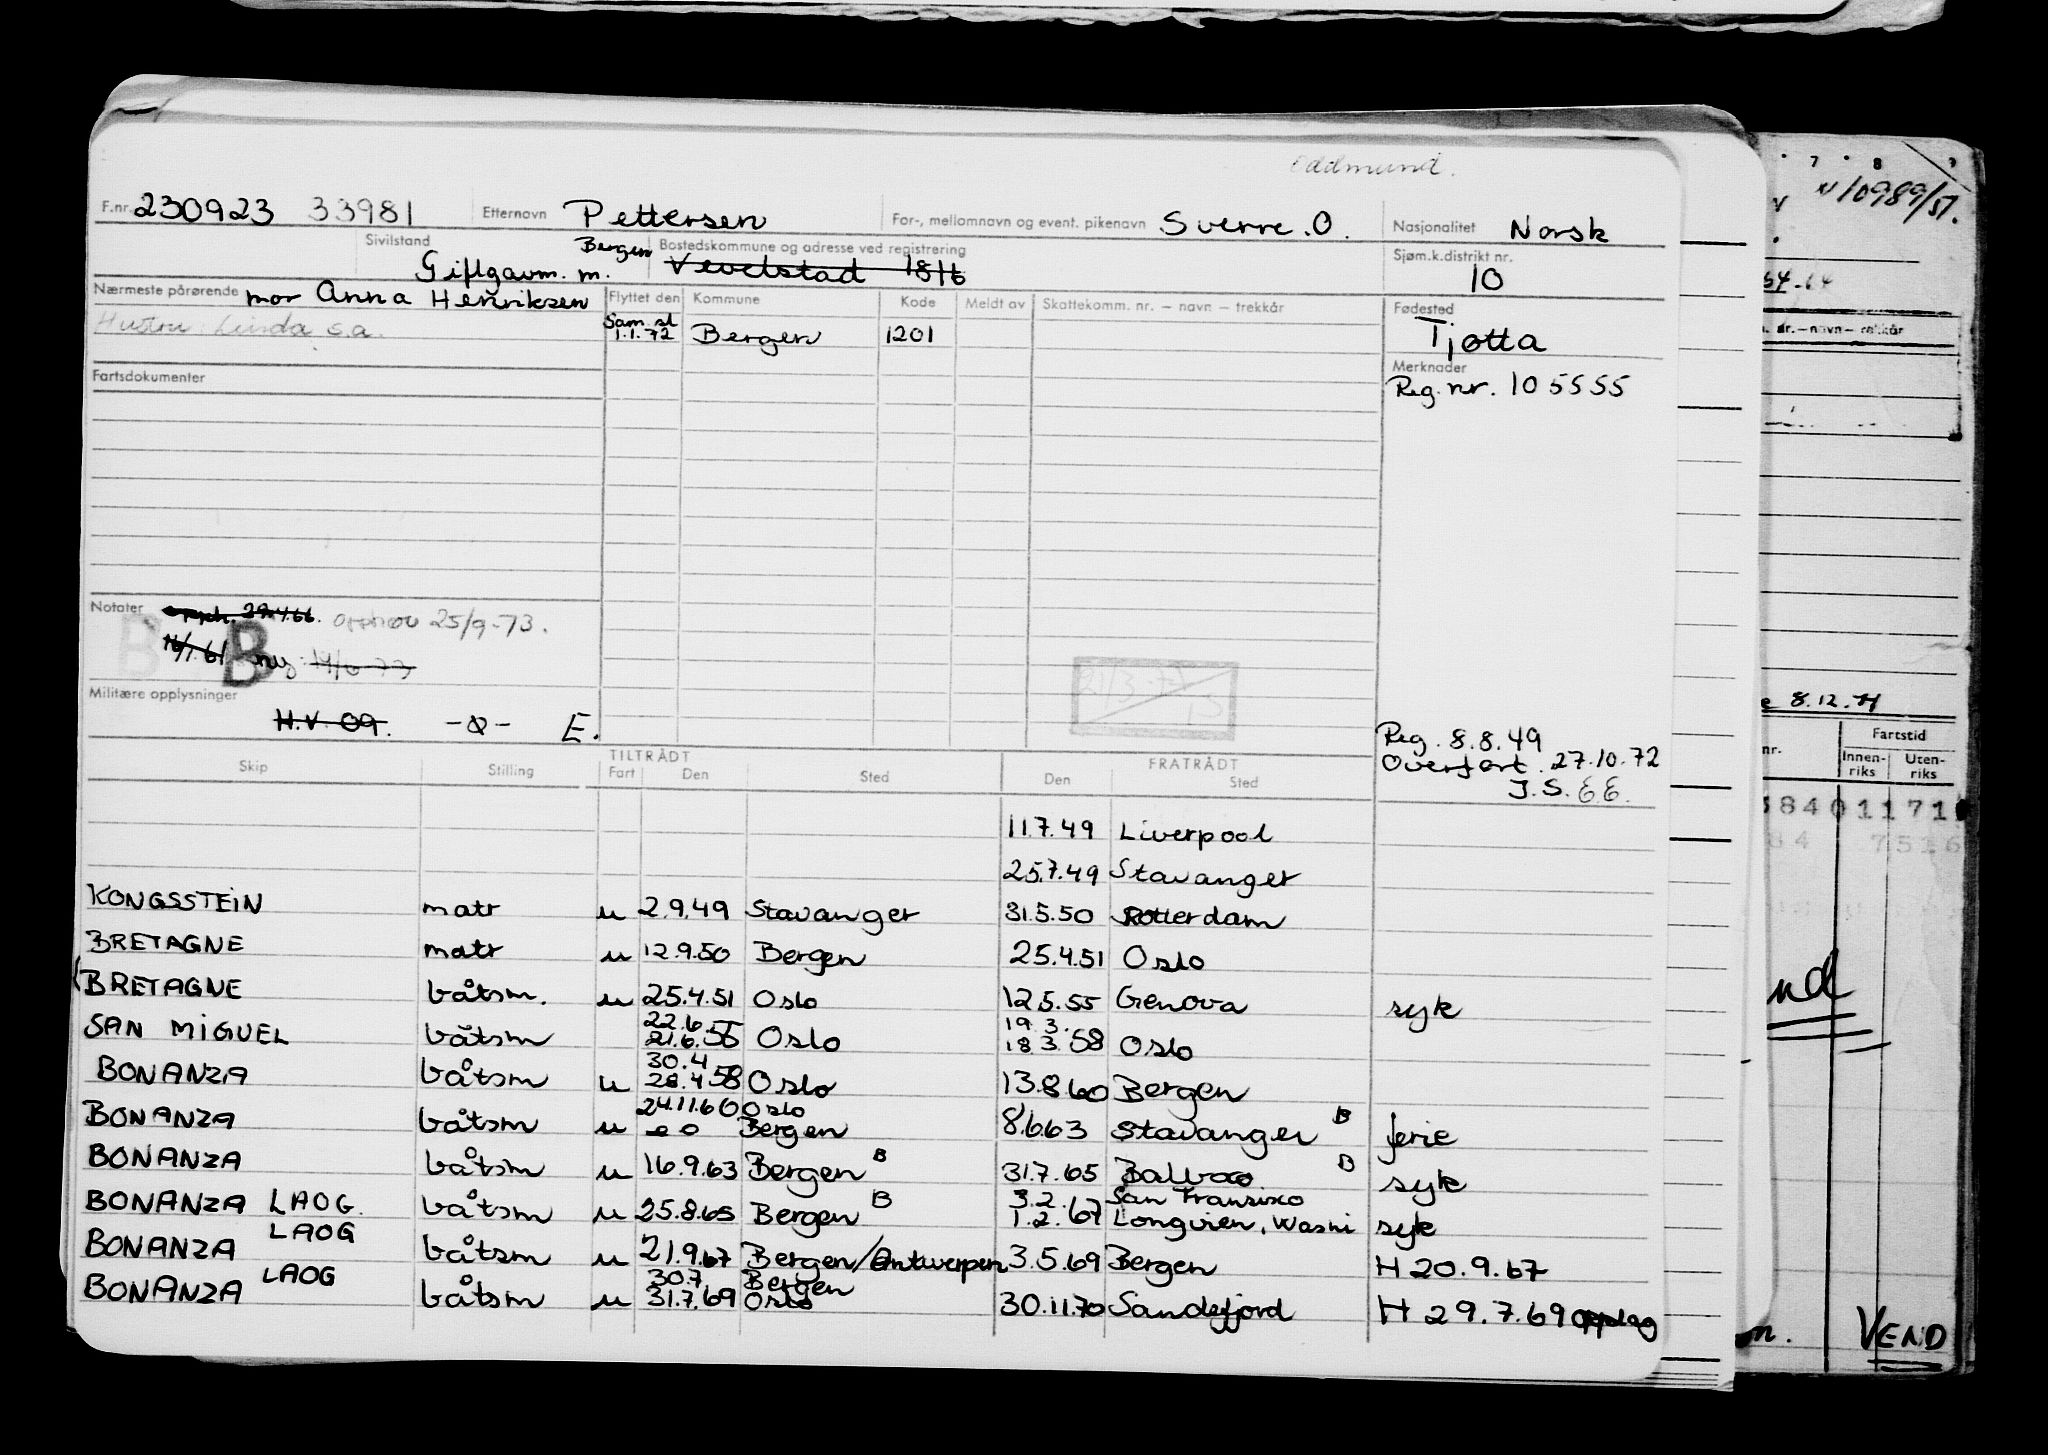 Eddmund.
F.nr. 230923 33981 Etternavn Pettersen For-, mellomnavn og event. pikenavn Sverre. O. Nasjonalitet Norsk
Sivilstand Gift gavm. m. Bergen Bostedskommune og adresse ved registrering Vevelstad 1816 Sjøm.k.distrikt nr. 10
Nærmeste pårørende mor Anna Henriksen Flyttet den Kommune Kode Meldt av Skattekomm. nr. – navn – trekkår Fødested
Hustru: Linda s.a. Sam. sl 1.1.72 Bergen 1201 Tjøtta
Fartsdokumenter Merknader
Reg. nr. 105555
Notater opph. 29.4.66. opphev 25/9-73.
B 16/1.61 B ny: 14/6-73
21/3-77
Militære opplysninger
H.V. 09. E.
Reg. 8.8.49
Overført 27.10.72
J.S. EE.
TILTRÅDT FRATRÅDT
Skip Stilling Fart Den Sted Den Sted
11.7.49 Liverpool
25.7.49 Stavanger
KONGSSTEIN matr u 2.9.49 Stavanger 31.5.50 Rotterdam
BRETAGNE matr u 12.9.50 Bergen 25.4.51 Oslo
BRETAGNE båtsm. u 25.4.51 Oslo 12.5.55 Genova syk
22.6. 19.3.
SAN MIGUEL båtsm 21.6.55 Oslo 18.3.58 Oslo
30.4
BONANZA båtsm u 28.4.58 Oslo 13.8.60 Bergen
24.11.60 Oslo
BONANZA båtsm u Bergen 8.6.63 Stavanger B ferie
BONANZA båtsm u 16.9.63 Bergen B 31.7.65 Balboa B syk
3.2. San Fransisko
BONANZA LAOG. båtsm u 25.8.65 Bergen B 1.2.67 Longview, Wash syk
BONANZA LAOG båtsm u 21.9.67 Bergen/Antwerpen 3.5.69 Bergen H 20.9.67
30.7 Bergen
BONANZA LAOG båtsm u 31.7.69 Oslo 30.11.70 Sandefjord H 29.7.69 opplag
7 8 9
N 10989/51.
64-64
nr.–navn–
8.12.71
nr. Fartstid
Innen-riks Uten-riks
8401171
84 7516
nd
VEND